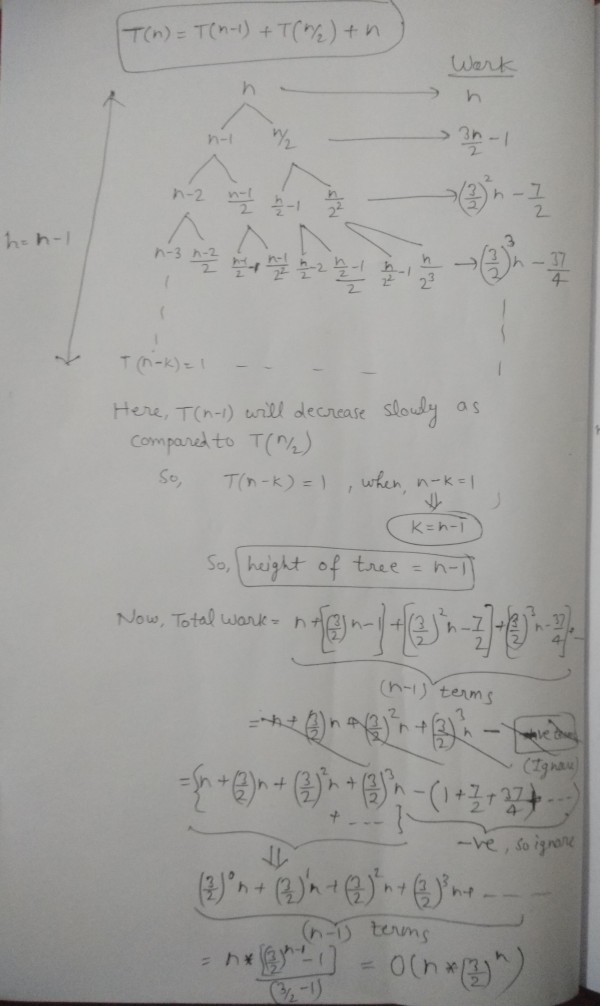 T(n) = T(n-1) + T(n/2) + n
Work
n → n
n-1 n/2 → 3n/2 - 1
n-2 (n-1)/2 n/2-1 n/2² → (3/2)² n - 7/2
h = n-1
n-3 (n-2)/2 (n-1)/2-1 (n-1)/2² n/2-2 (n/2-1)/2 n/2²-1 n/2³ → (3/2)³ n - 37/4
T(n-k) = 1 - - - -
Here, T(n-1) will decrease slowly as
compared to T(n/2)
So, T(n-k) = 1 , when, n-k=1
⇓
k=n-1
So, height of tree = n-1
Now, Total work = n+[(3/2)n-1]+[(3/2)²n-7/2]+[(3/2)³n-37/4]...
(n-1) terms
= n + (3/2)n + (3/2)²n + (3/2)³n -
(Ignore)
= {n + (3/2)n + (3/2)²n + (3/2)³n - (1+7/2+37/4+ ---)
+ ---- }
-ve, so ignore
⇓
(3/2)⁰n + (3/2)¹n + (3/2)²n + (3/2)³n + - - - -
(n-1) terms
= n * [(3/2)ⁿ⁻¹-1] / (3/2-1) = O(n * (3/2)ⁿ)